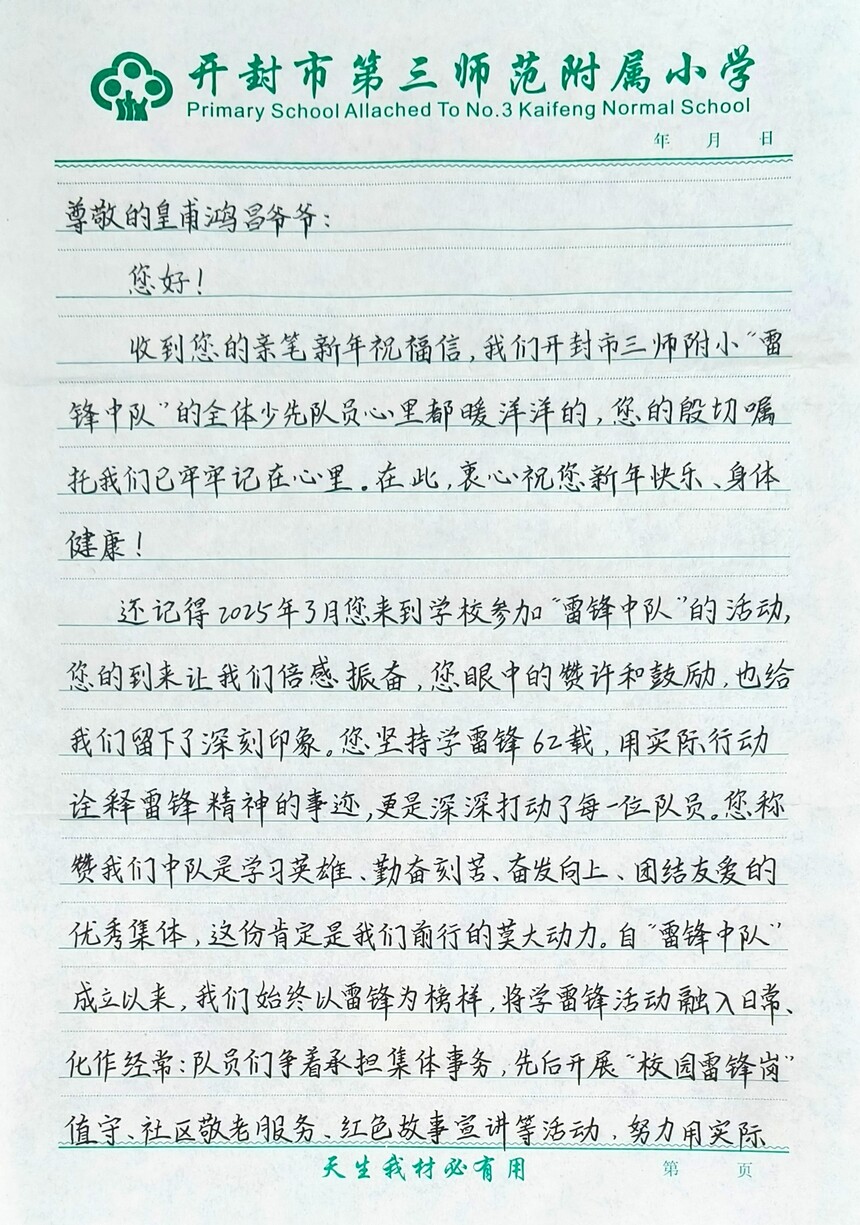 开封市第三师范附属小学
Primary School Allached To No.3 Kaifeng Normal School
年 月 日
尊敬的皇甫鸿昌爷爷：
您好！
收到您的亲笔新年祝福信，我们开封市三师附小“雷
锋中队”的全体少先队员心里都暖洋洋的，您的殷切嘱
托我们已牢牢记在心里。在此，衷心祝您新年快乐、身体
健康！
还记得2025年3月您来到学校参加“雷锋中队”的活动，
您的到来让我们倍感振奋，您眼中的赞许和鼓励，也给
我们留下了深刻印象。您坚持学雷锋62载，用实际行动
诠释雷锋精神的事迹，更是深深打动了每一位队员。您称
赞我们中队是学习英雄、勤奋刻苦、奋发向上、团结友爱的
优秀集体，这份肯定是我们前行的莫大动力。自“雷锋中队”
成立以来，我们始终以雷锋为榜样，将学雷锋活动融入日常、
化作经常：队员们争着承担集体事务，先后开展“校园雷锋岗”
值守、社区敬老服务、红色故事宣讲等活动，努力用实际
天生我材必有用
第 页